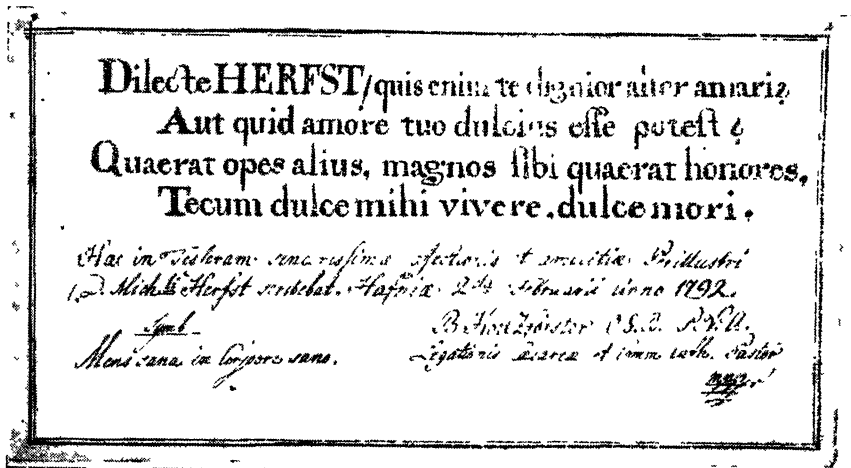 Dilecte HERFST/quis enim te dignior alter amari?
Aut quid amore tuo dulcius esse potest?
Quaerat opes alius, magnos sibi quaerat honores,
Tecum dulce mihi vivere, dulce mori.
Hac in Tesseram sincerissimae affectionis et amicitiae Prillustri
D. Mich. Herfst scribebat. Hafniae 2da Februarii anno 1792.
Symb.
Mens sana in Corpore sano.
Legationis Caesareae et imm cath. Pastor
mppr